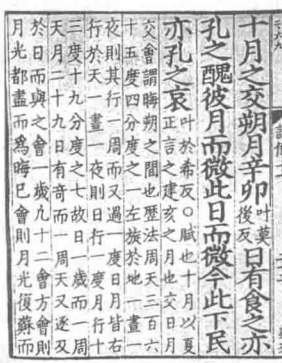 十月之交朔月辛卯叶莫後反日有食之亦
孔之醜彼月而微此日而微今此下民
亦孔之哀叶於希反○賦也十月以夏
正言之建亥之月也交日月
交會謂晦朔之間也歷法周天三百六
十五度四分度之一左旋於地一晝一
夜則其行一周而又過一度日月皆右
行於天一晝一夜則日行一度月行十
三度十九分度之七故日一歲而一周
天月二十九日有奇而一周天又逐及
於日而與之會一歲凡十二會方會則
月光都盡而爲晦已會則月光復蘇而